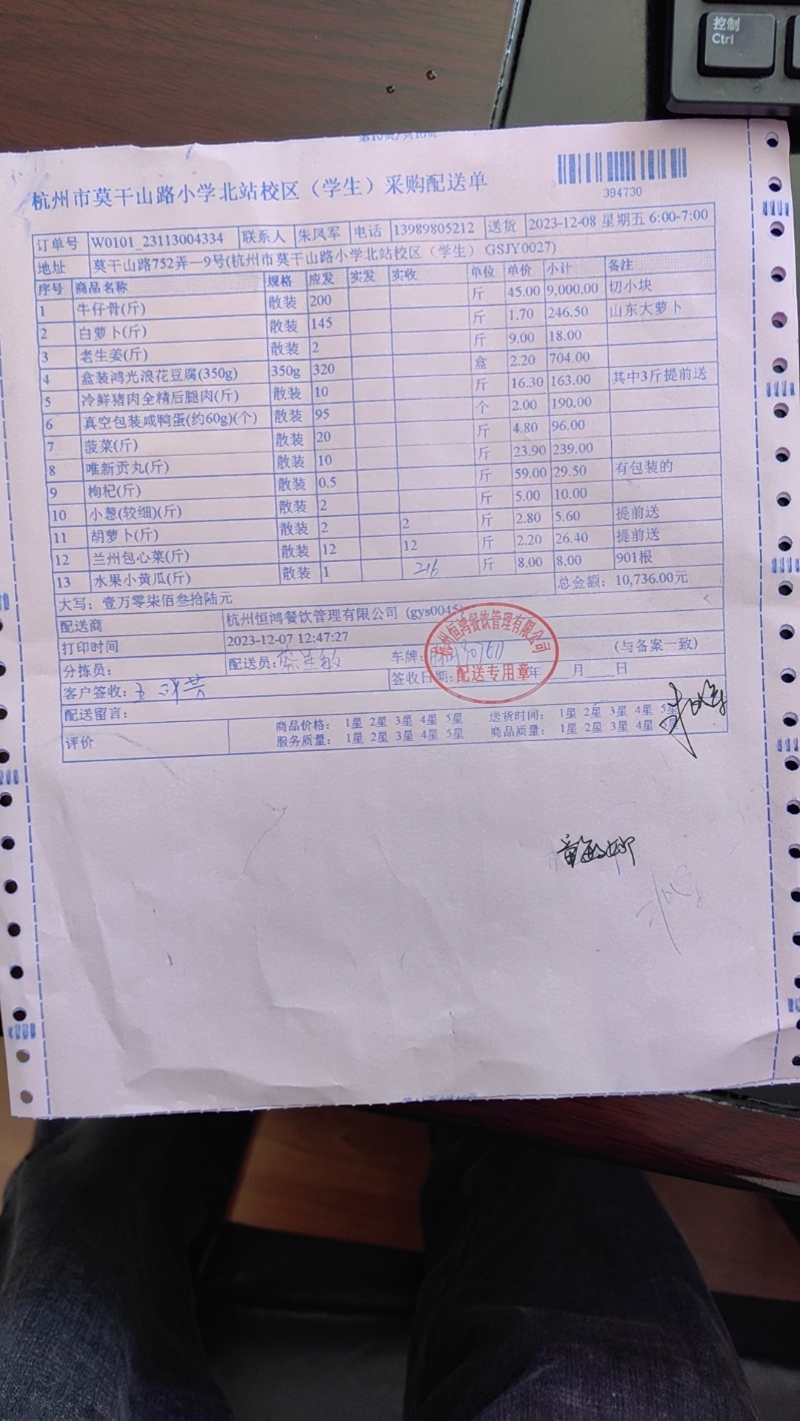 控制
Ctrl
杭州市莫干山路小学北站校区（学生）采购配送单
384730
订单号 W0101_23113004334 联系人 朱凤军 电话 13989805212 送货 2023-12-08 星期五 6:00-7:00
地址 莫干山路752弄一9号(杭州市莫干山路小学北站校区（学生） GSJY0027)
序号 商品名称 规格 应发 实发 实收 单位 单价 小计 备注
1 牛仔骨(斤) 散装 200 斤 45.00 9,000.00 切小块
2 白萝卜(斤) 散装 145 斤 1.70 246.50 山东大萝卜
3 老生姜(斤) 散装 2 斤 9.00 18.00
4 盒装鸿光浪花豆腐(350g) 350g 320 盒 2.20 704.00
5 冷鲜猪肉全精后腿肉(斤) 散装 10 斤 16.30 163.00 其中3斤提前送
6 真空包装咸鸭蛋(约60g)(个) 散装 95 个 2.00 190.00
7 菠菜(斤) 散装 20 斤 4.80 96.00
8 唯新贡丸(斤) 散装 10 斤 23.90 239.00
9 枸杞(斤) 散装 0.5 斤 59.00 29.50 有包装的
10 小葱(较细)(斤) 散装 2 斤 5.00 10.00
11 胡萝卜(斤) 散装 2 2 斤 2.80 5.60 提前送
12 兰州包心菜(斤) 散装 12 12 斤 2.20 26.40 提前送
13 水果小黄瓜(斤) 散装 1 216 斤 8.00 8.00 901根
大写：壹万零柒佰叁拾陆元 总金额：10,736.00元
配送商 杭州恒鸿餐饮管理有限公司 (gys0045)
打印时间 2023-12-07 12:47:27
分拣员： 配送员： 车牌： (与备案一致)
客户签收： 签收日期： 年 月 日
杭州恒鸿餐饮管理有限公司
配送专用章
配送留言：
评价 商品价格： 1星 2星 3星 4星 5星 送货时间： 1星 2星 3星 4星 5星
服务质量： 1星 2星 3星 4星 5星 商品质量： 1星 2星 3星 4星